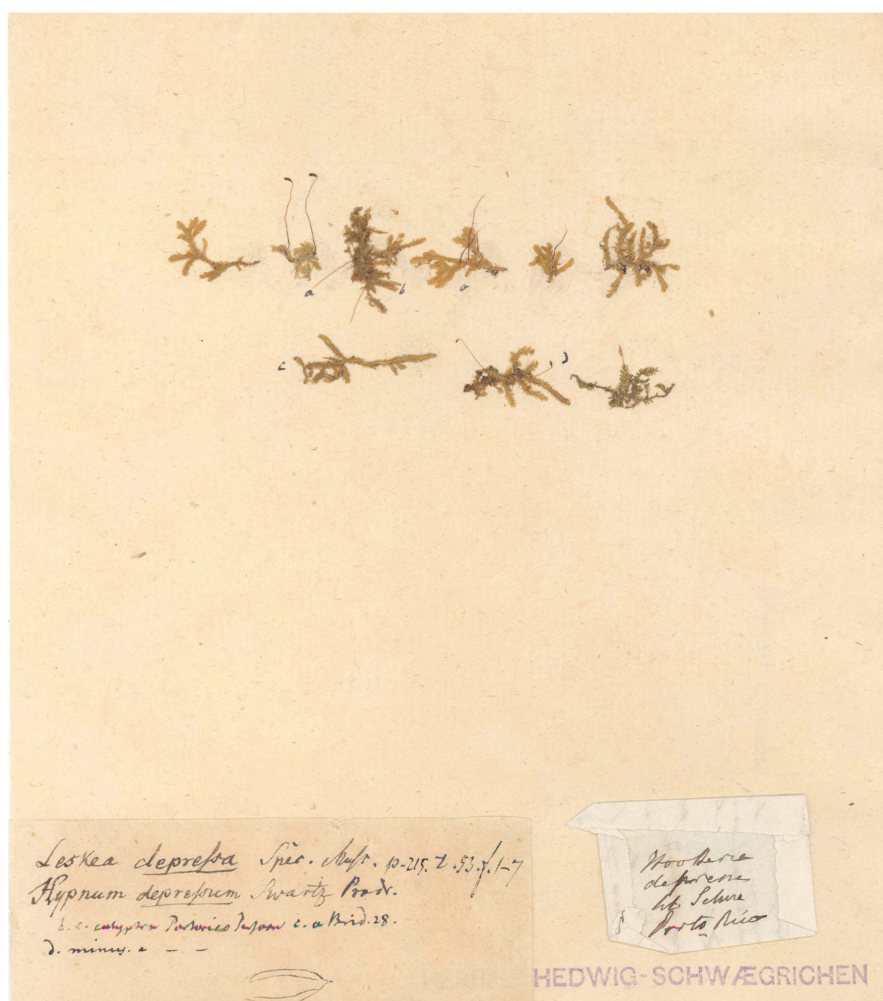 a
b
a
c
d
Leskea depreſsa Spec. Musc. p. 215. t. 53. f. 1-7
Hypnum depreſsum Swartz Prodr.
b. c. calyptra Portorico c. a Brid. 28.
d. minus. a — —
Hookeria
depressa
hb Schw
Porto Rico
HEDWIG-SCHWÆGRICHEN